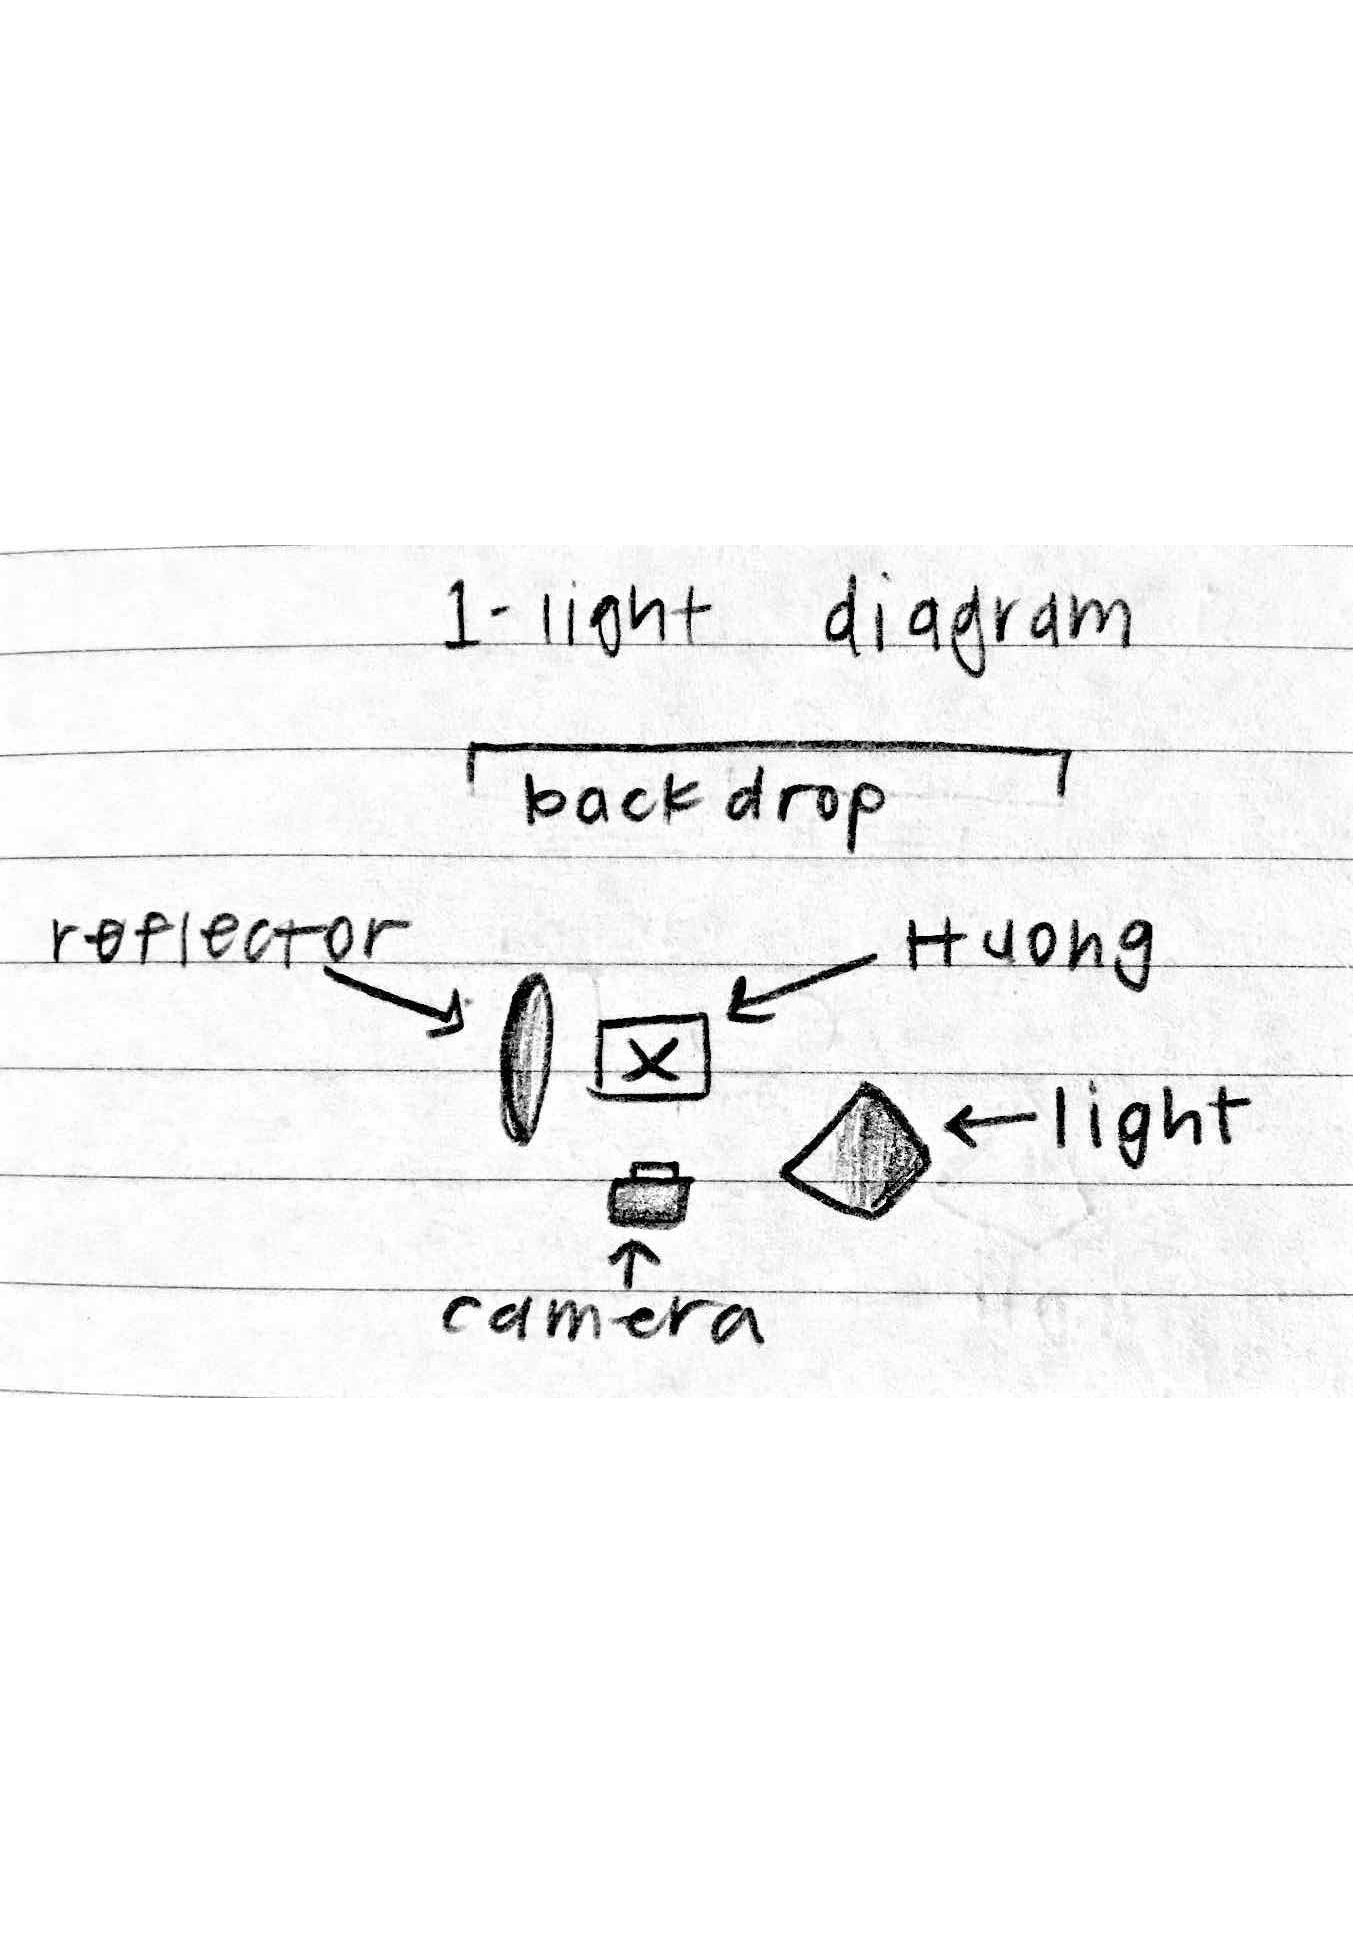 1-light diagram
backdrop
reflector
Huong
light
camera